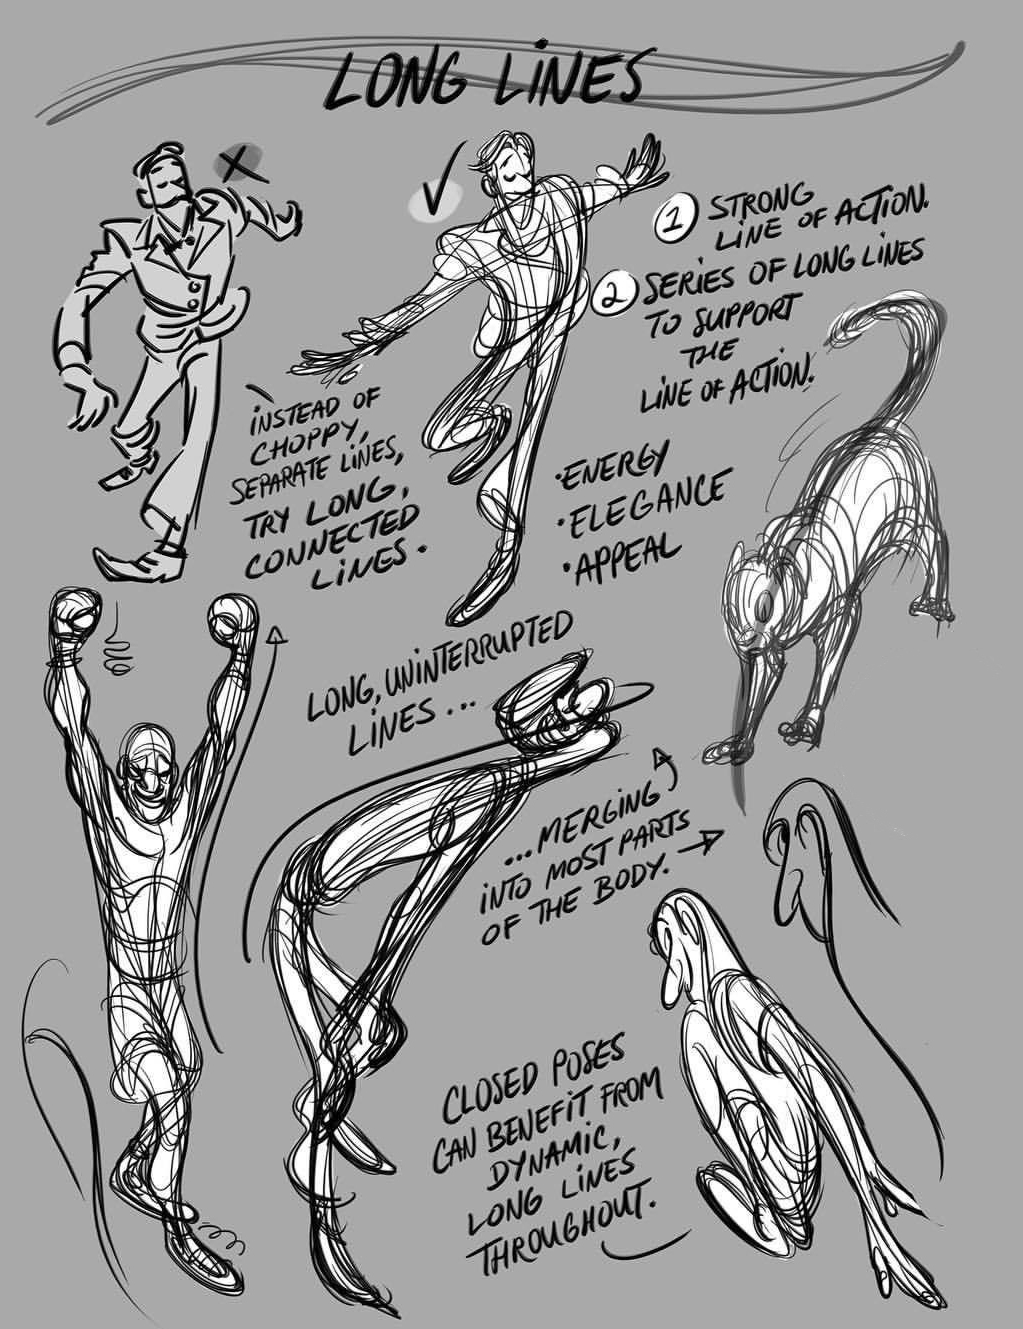 LONG LiNES
1 STRONG
LiNE OF ACTiON.
2 SERiES OF LONG LiNES
TO SUPPORT
THE
LiNE OF ACTiON.
iNSTEAD OF
CHOPPY,
SEPARATE LiNES,
TRY LONG,
CONNECTED
LiNES.
•ENERGY
•ELEGANCE
•APPEAL
LONG, UNiNTERRUPTED
LiNES...
...MERGiNG
iNTO MOST PARTS
OF THE BODY.
CLOSED POSES
CAN BENEFiT FROM
DYNAMiC,
LONG LiNES
THROUGHOUT.